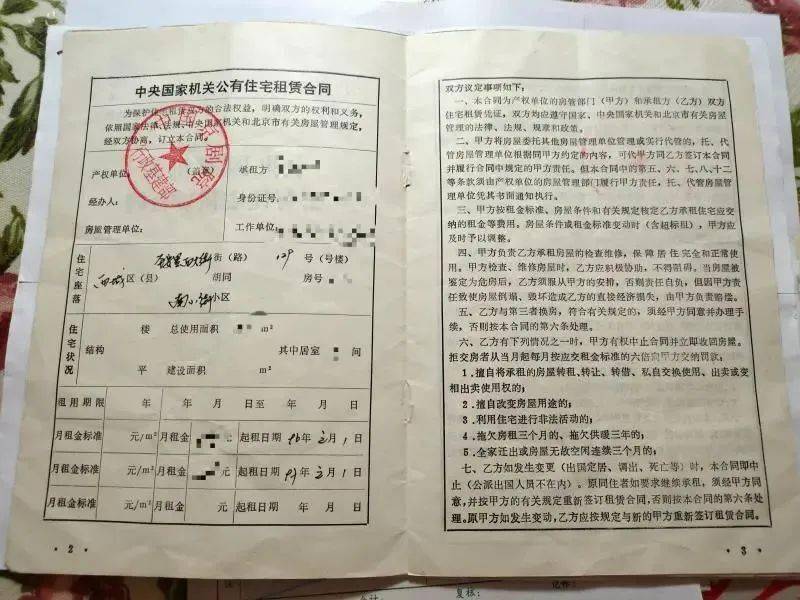 中央国家机关公有住宅租赁合同
为保护住宅租赁双方的合法权益，明确双方的权利和义务，
依照国家法律、法规、中央国家机关和北京市有关房屋管理规定，
经双方协商，订立本合同。
产权单位： （盖章） 承租方
经办人： 身份证号：
房屋管理单位： 工作单位：
住宅座落
西城区（县） 大街街（路） 129 号（号楼）
胡同 房号
南小街小区
住宅状况
楼 总使用面积 m²
结构 其中居室 间
平 建设面积 m²
租用期限 年 年 月 日至 年 月 日
月租金标准 元/m² 月租金 元 起租日期 年 月 1 日
月租金标准 元/m² 月租金 元 起租日期 年 月 1 日
月租金标准 元/m² 月租金 元 起租日期 年 月 日
· 2 ·
双方议定事项如下：
一、本合同为产权单位的房管部门（甲方）和承租方（乙方）双方
住宅租赁凭证。双方均应遵守国家、中央国家机关和北京市有关房屋
管理的法律、法规、规章和政策。
二、甲方将房屋委托其他房屋管理单位管理或实行代管的，托、代
管房屋管理单位根据同甲方约定的内容，可代甲方同乙方签订本合同
并履行合同中规定的甲方责任。但本合同中的第五、六、七、八、十二
等条款须由产权单位的房屋管理部门履行甲方责任，托、代管房屋管
理单位凭其书面通知执行。
三、甲方按租金标准、房屋条件和有关规定核定乙方承租住宅应交
纳的租金等费用。房屋条件或租金标准变动时（含超标租），甲方应
及时予以调整。
四、甲方负责乙方承租房屋的检查维修，保障居住完全和正常使
用。甲方检查、维修房屋时，乙方应积极协助，不得阻碍。当房屋被
鉴定为危房后，乙方须服从甲方的安排，否则责任自负，但因甲方责
任致使房屋倒塌、毁坏造成乙方的直接经济损失，由甲方负责赔偿。
五、乙方与第三者换房，符合有关规定的，须经甲方同意并办理手
续，否则按本合同的第六条处理。
六、乙方有下列情况之一时，甲方有权中止合同并立即收回房屋。
拒交房者从当月起每月按应交租金标准的六倍向甲方交纳罚款：
1．擅自将承租的房屋转租、转让、转借、私自交换使用、出卖或变
相出卖使用权的；
2．擅自改变房屋用途的；
3．利用住宅进行非法活动的；
4．拖欠房租三个月的、拖欠供暖三年的；
5．全家迁出或房屋无故空闲连续三个月的；
七、乙方如发生变更（出国定居、调出、死亡等）时，本合同即中
止（公派出国人员不在内）。原同住者如要求继续承租，须经甲方同
意，并按甲方的有关规定重新签订租赁合同，否则按本合同的第六条处
理。原甲方如发生变动，乙方应按规定与新的甲方重新签订租赁合同。
· 3 ·
复核：